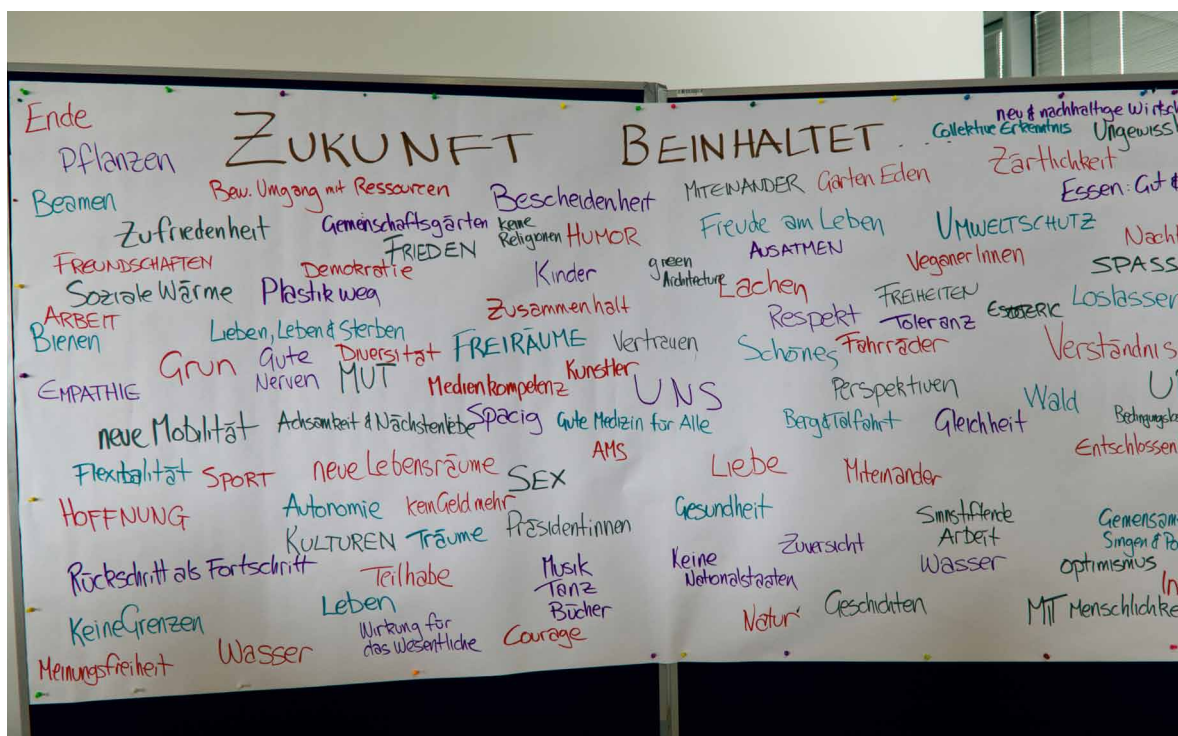 Ende
ZUKUNFT BEINHALTET...
neu & nachhaltige Wirtsch
Collektive Erkenntnis
Ungewissh
Pflanzen
Zärtlichkeit
Beamen
Bew. Umgang mit Ressourcen
Bescheidenheit
MITEINANDER
Garten Eden
Essen: Gut &
Zufriedenheit
Gemeinschaftsgärten
keine
Religionen
HUMOR
Freude am Leben
UMWELTSCHUTZ
Nacht
FRIEDEN
AUSATMEN
FREUNDSCHAFTEN
Demokratie
Kinder
green
Architecture
Lachen
VeganerInnen
SPASS
Soziale Wärme
Plastik weg
Zusammenhalt
FREIHEITEN
Loslassen
ARBEIT
Respekt
Toleranz
Bienen
Lieben, Leben & Sterben
FREIRÄUME
Vertrauen
Schönes
Fahrräder
Verständnis
Grün
Gute
Nerven
Diversität
MUT
EMPATHIE
Medienkompetenz
Künstler
UNS
Perspektiven
Wald
neue Mobilität
Achsamkeit & Nächstenliebe
Spacig
Gute Medizin für Alle
Berg & Talfahrt
Gleichheit
AMS
Entschlossen
Flexibalität
SPORT
neue Lebensräume
SEX
Liebe
Miteinander
HOFFNUNG
Autonomie
kein Geld mehr
Gesundheit
Sinnstiftende
Arbeit
Gemeinsam
KULTUREN
Träume
Präsidentinnen
Zuversicht
Singen & Po
Rückschritt als Fortschritt
Teilhabe
Musik
Tanz
Bücher
Keine
Nationalstaaten
Wasser
optimismus
In
Leben
Keine Grenzen
Wirkung für
das Wesentliche
Courage
Natur
Geschichten
MIT Menschlichke
Meinungsfreiheit
Wasser